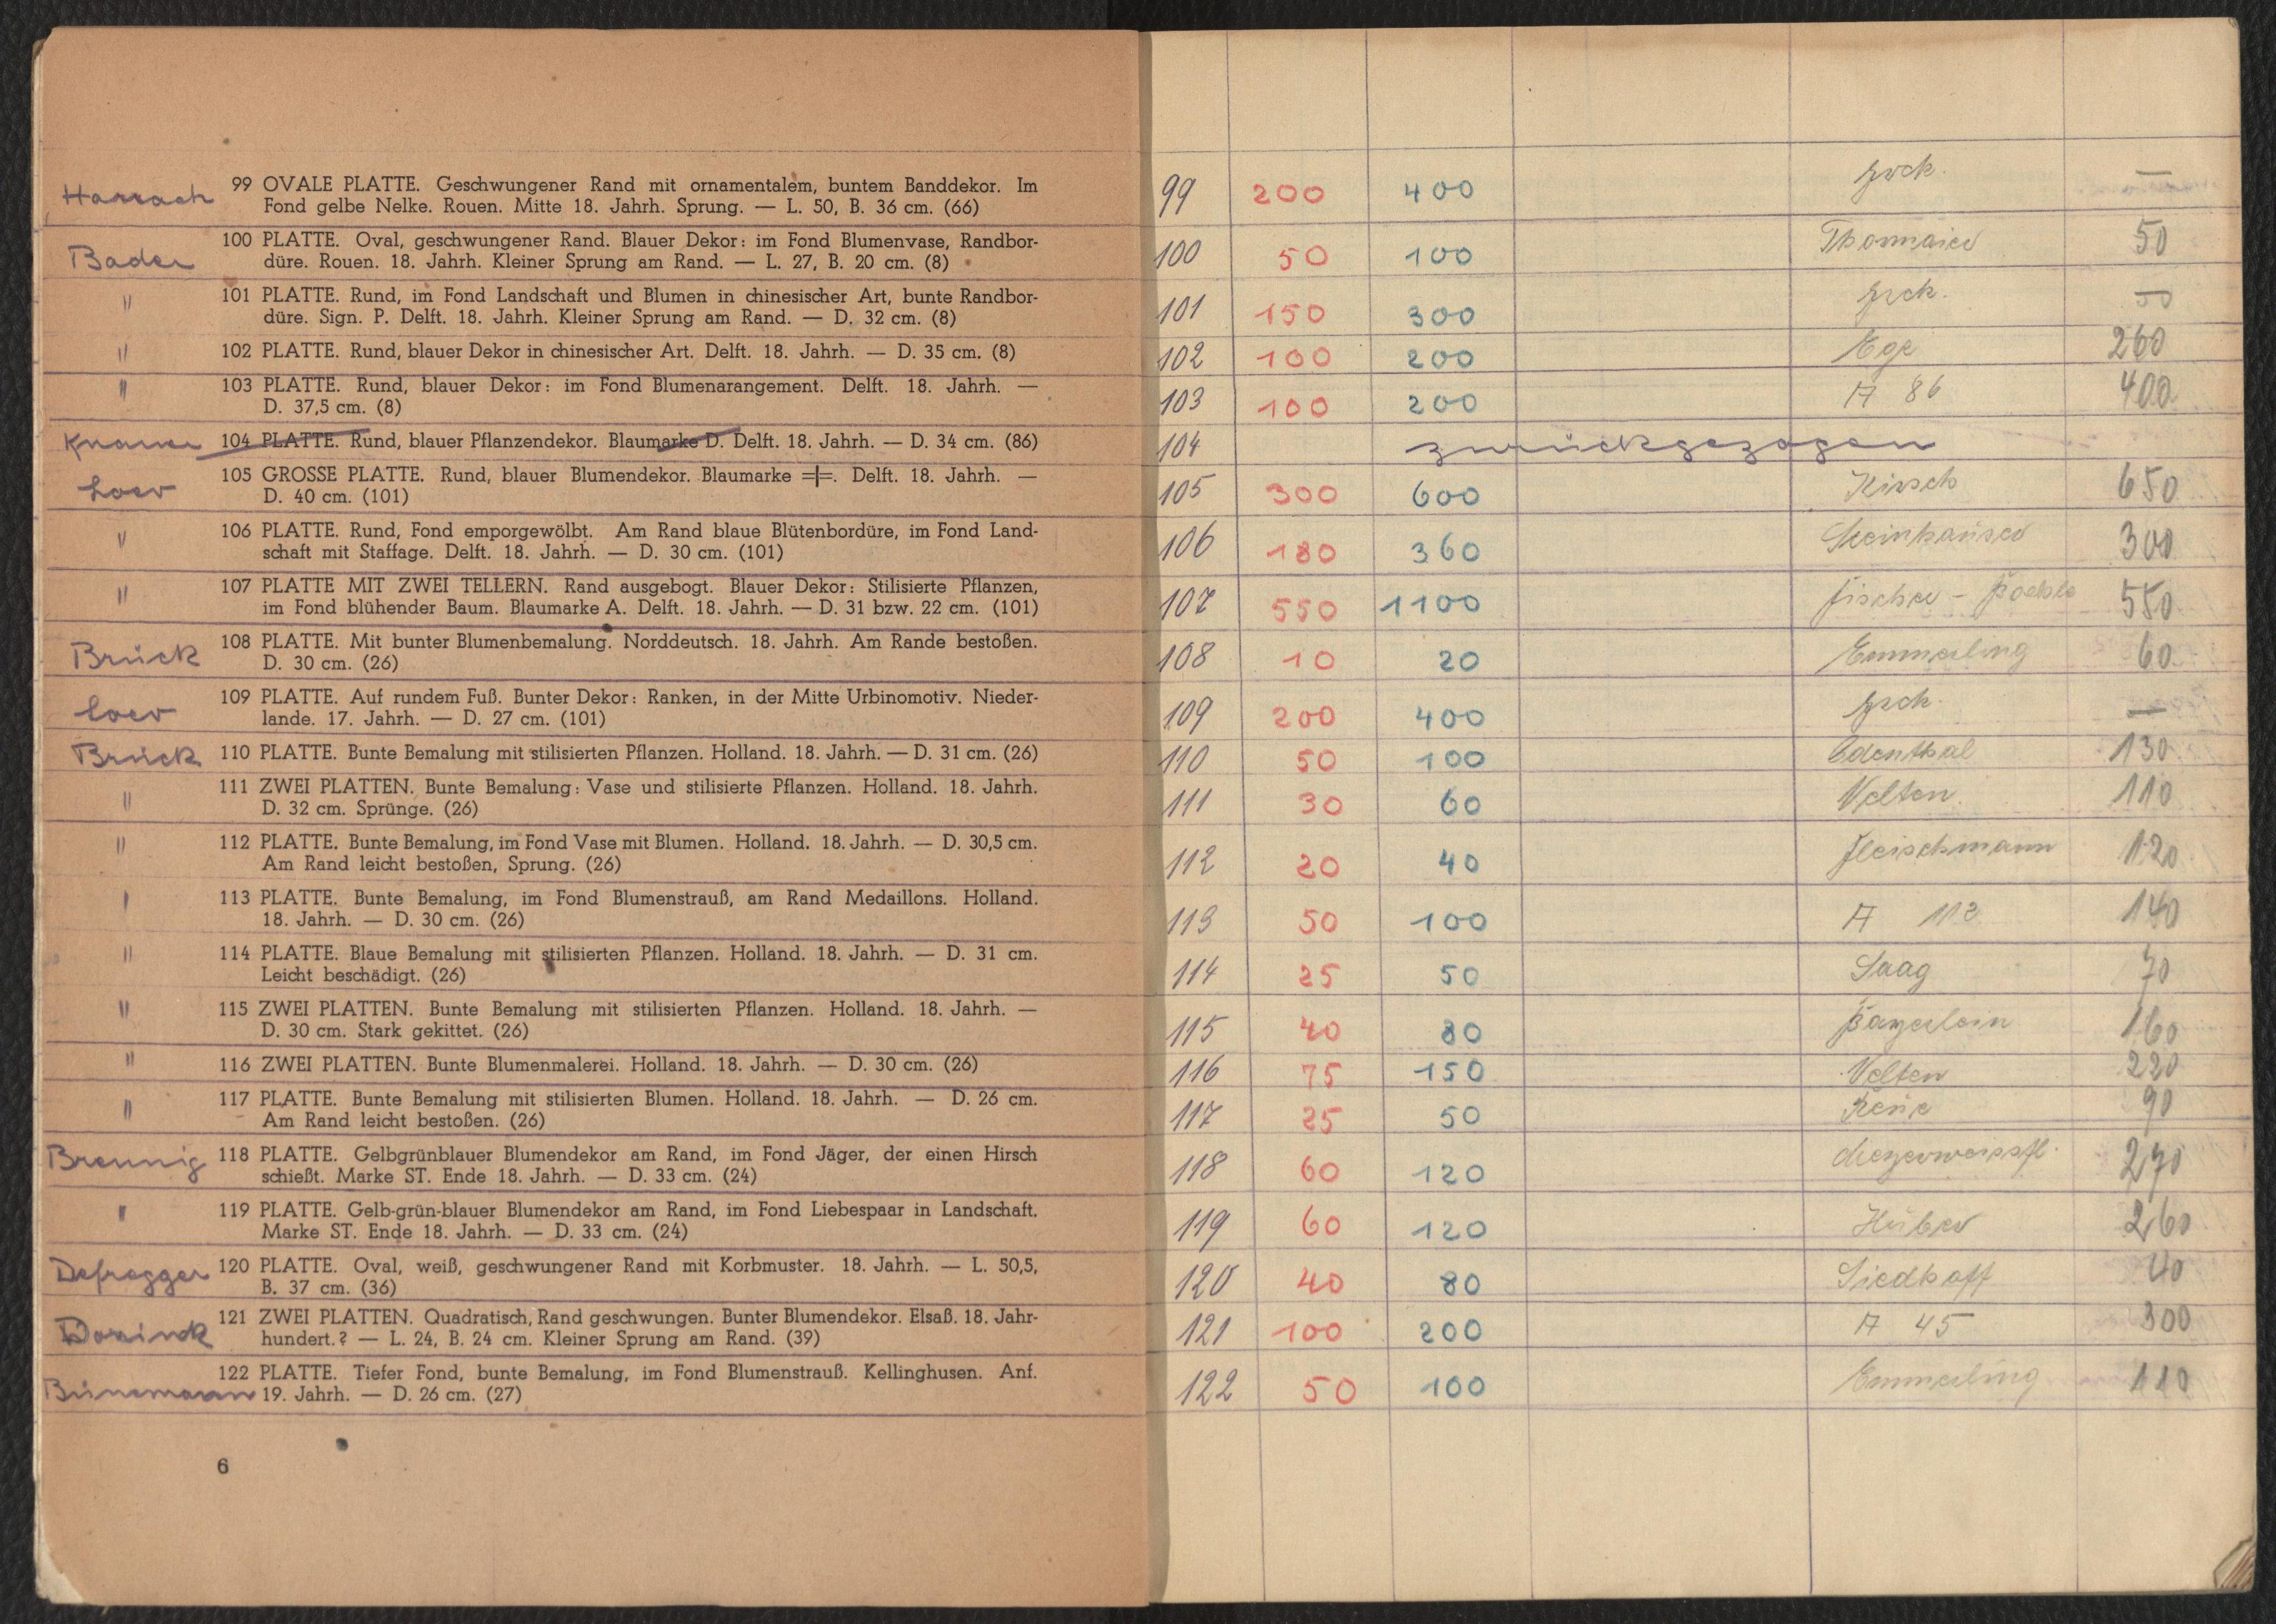 Harrach 99 OVALE PLATTE. Geschwungener Rand mit ornamentalem, buntem Banddekor. Im
Fond gelbe Nelke. Rouen. Mitte 18. Jahrh. Sprung. — L. 50, B. 36 cm. (66)
Bader 100 PLATTE. Oval, geschwungener Rand. Blauer Dekor: im Fond Blumenvase, Randbor-
düre. Rouen. 18. Jahrh. Kleiner Sprung am Rand. — L. 27, B. 20 cm. (8)
" 101 PLATTE. Rund, im Fond Landschaft und Blumen in chinesischer Art, bunte Randbor-
düre. Sign. P. Delft. 18. Jahrh. Kleiner Sprung am Rand. — D. 32 cm. (8)
" 102 PLATTE. Rund, blauer Dekor in chinesischer Art. Delft. 18. Jahrh. — D. 35 cm. (8)
" 103 PLATTE. Rund, blauer Dekor: im Fond Blumenarangement. Delft. 18. Jahrh. —
D. 37,5 cm. (8)
104 PLATTE. Rund, blauer Pflanzendekor. Blaumarke D. Delft. 18. Jahrh. — D. 34 cm. (86)
Loev 105 GROSSE PLATTE. Rund, blauer Blumendekor. Blaumarke =|=. Delft. 18. Jahrh. —
D. 40 cm. (101)
" 106 PLATTE. Rund, Fond emporgewölbt. Am Rand blaue Blütenbordüre, im Fond Land-
schaft mit Staffage. Delft. 18. Jahrh. — D. 30 cm. (101)
" 107 PLATTE MIT ZWEI TELLERN. Rand ausgebogt. Blauer Dekor: Stilisierte Pflanzen,
im Fond blühender Baum. Blaumarke A. Delft. 18. Jahrh. — D. 31 bzw. 22 cm. (101)
Brück 108 PLATTE. Mit bunter Blumenbemalung. Norddeutsch. 18. Jahrh. Am Rande bestoßen.
D. 30 cm. (26)
Loev 109 PLATTE. Auf rundem Fuß. Bunter Dekor: Ranken, in der Mitte Urbinomotiv. Nieder-
lande. 17. Jahrh. — D. 27 cm. (101)
Brück 110 PLATTE. Bunte Bemalung mit stilisierten Pflanzen. Holland. 18. Jahrh. — D. 31 cm. (26)
" 111 ZWEI PLATTEN. Bunte Bemalung: Vase und stilisierte Pflanzen. Holland. 18. Jahrh.
D. 32 cm. Sprünge. (26)
" 112 PLATTE. Bunte Bemalung, im Fond Vase mit Blumen. Holland. 18. Jahrh. — D. 30,5 cm.
Am Rand leicht bestoßen, Sprung. (26)
" 113 PLATTE. Bunte Bemalung, im Fond Blumenstrauß, am Rand Medaillons. Holland.
18. Jahrh. — D. 30 cm. (26)
" 114 PLATTE. Blaue Bemalung mit stilisierten Pflanzen. Holland. 18. Jahrh. — D. 31 cm.
Leicht beschädigt. (26)
" 115 ZWEI PLATTEN. Bunte Bemalung mit stilisierten Pflanzen. Holland. 18. Jahrh. —
D. 30 cm. Stark gekittet. (26)
" 116 ZWEI PLATTEN. Bunte Blumenmalerei. Holland. 18. Jahrh. — D. 30 cm. (26)
" 117 PLATTE. Bunte Bemalung mit stilisierten Blumen. Holland. 18. Jahrh. — D. 26 cm.
Am Rand leicht bestoßen. (26)
Brennig 118 PLATTE. Gelbgrünblauer Blumendekor am Rand, im Fond Jäger, der einen Hirsch
schießt. Marke ST. Ende 18. Jahrh. — D. 33 cm. (24)
" 119 PLATTE. Gelb-grün-blauer Blumendekor am Rand, im Fond Liebespaar in Landschaft.
Marke ST. Ende 18. Jahrh. — D. 33 cm. (24)
Defregger 120 PLATTE. Oval, weiß, geschwungener Rand mit Korbmuster. 18. Jahrh. — L. 50,5,
B. 37 cm. (36)
121 ZWEI PLATTEN. Quadratisch, Rand geschwungen. Bunter Blumendekor. Elsaß. 18. Jahr-
hundert.? — L. 24, B. 24 cm. Kleiner Sprung am Rand. (39)
122 PLATTE. Tiefer Fond, bunte Bemalung, im Fond Blumenstrauß. Kellinghusen. Anf.
Brünemann 19. Jahrh. — D. 26 cm. (27)
6
99 200 400 —
100 50 100 50
101 150 300 zrck. —
102 100 200 Ege 260
103 100 200 A 86 400
104 zurückgezogen
105 300 600 Kirsch 650
106 180 360 Steinhauser 300
107 550 1100 550
108 10 20 Emmerling 60
109 200 400 zrck. —
110 50 100 Odenthal 130
111 30 60 Velten 110
112 20 40 Fleischmann 120
113 50 100 A 112 140
114 25 50 Saag 70
115 40 80 160
116 75 150 Velten 220
117 25 50 90
118 60 120 270
119 60 120 Huber 260
120 40 80 Siedhoff 40
121 100 200 A 45 300
122 50 100 Emmerling 110